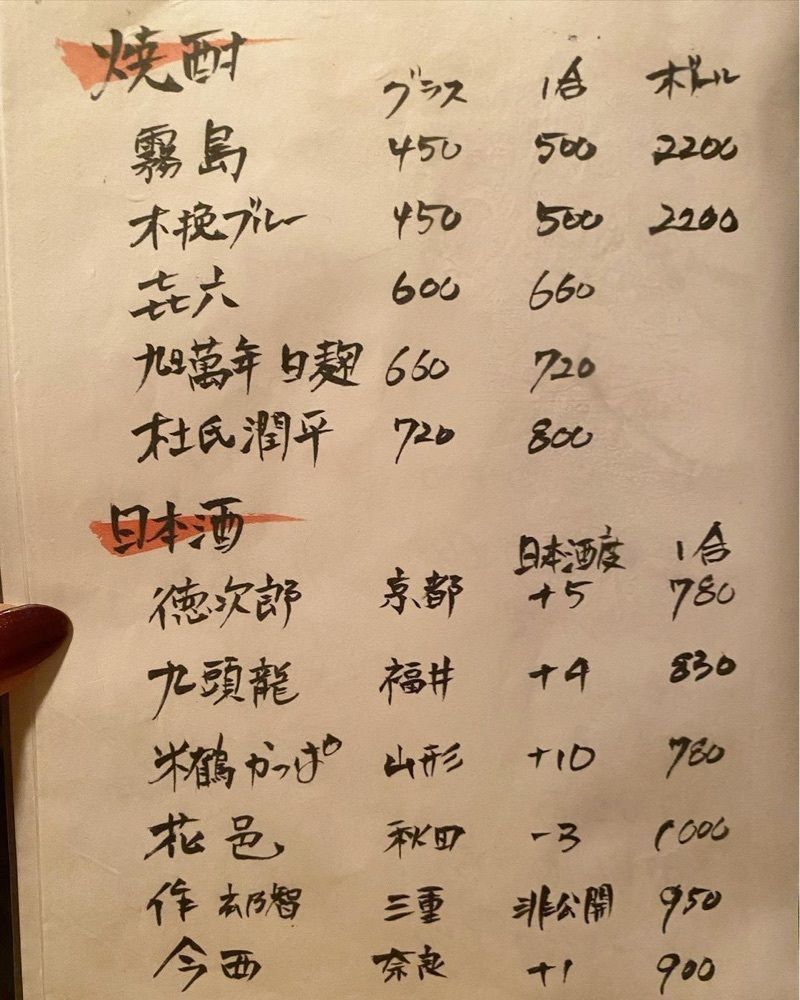 焼酎
グラス 1合 ボトル
霧島 450 500 2200
木挽ブルー 450 500 2200
㐂六 600 660
旭萬年 白麹 660 720
杜氏潤平 720 800
日本酒
日本酒度 1合
徳次郎 京都 +5 780
九頭龍 福井 +4 830
米鶴かっぱ 山形 +10 780
花邑 秋田 -3 1000
作 玄乃智 三重 非公開 950
今西 奈良 +1 900